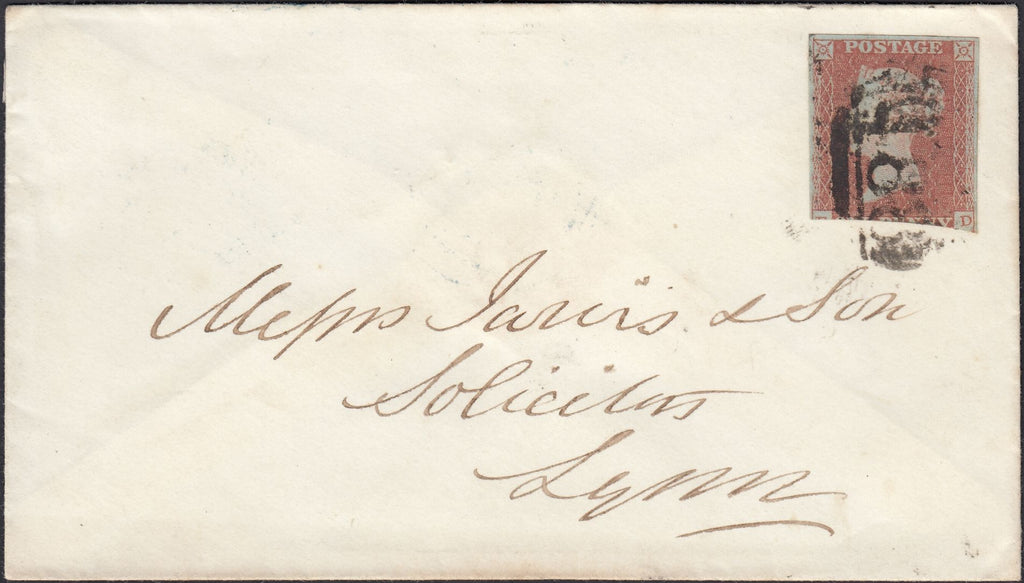 POSTAGE
D
Messrs Jarvis & Son
Solicitors
Lynn